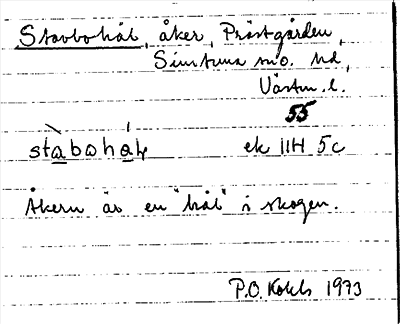 Stavbohål, åker, Prästgården,
Simtuna sn o. hd,
Västm. l.
55
stabohål ek 11H 5c
Åkern är en "hål" i skogen.
P.O. 1973